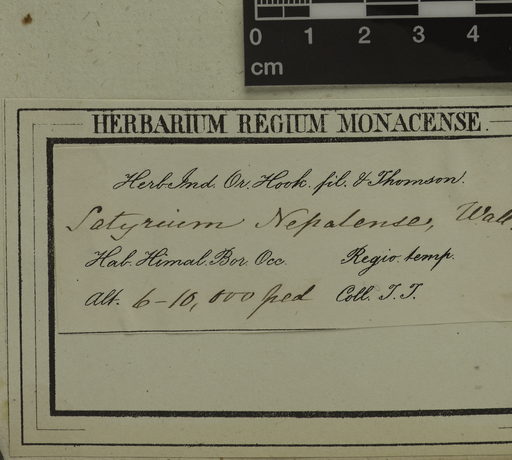 0 1 2 3 4
cm
HERBARIUM REGIUM MONACENSE.
Herb. Ind. Or. Hook. fil. & Thomson.
Satyrium Nepalense, Wall.
Hab. Himal. Bor. Occ. Regio. temp.
Alt. 6-10,000 ped Coll. T.T.